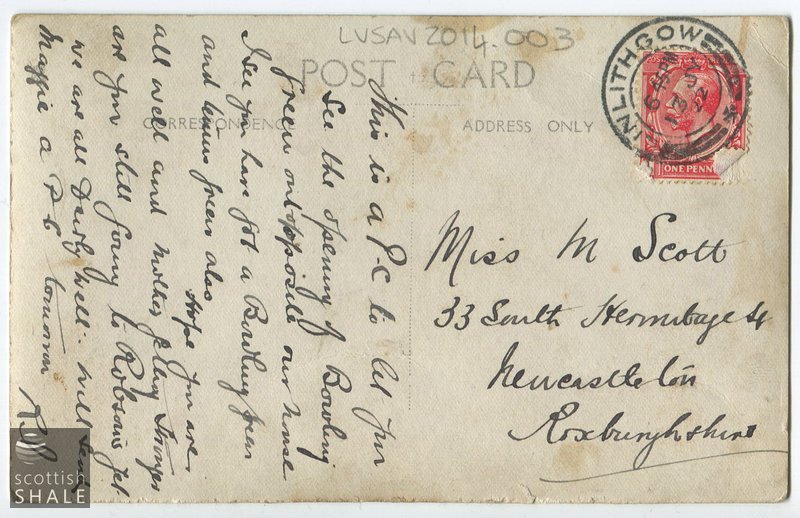 LVSAV2014.003
POST CARD
CORRESPONDENCE
ADDRESS ONLY
LINLITHGOW
6 15 PM
13 JU
22
ONE PENNY
This is a P-C to let you
see the opening of Bowling
Green out opposite our house
I see you have got a Bowling green
and tennis green also
Hope you are
all well and Mother feeling stronger
are you still going to Robsons yet
we are all Fairly well. will send
Maggie a P-C tomorrow
Miss M Scott
33 South Hermitage St
Newcastleton
Roxburghshire
scottish
SHALE